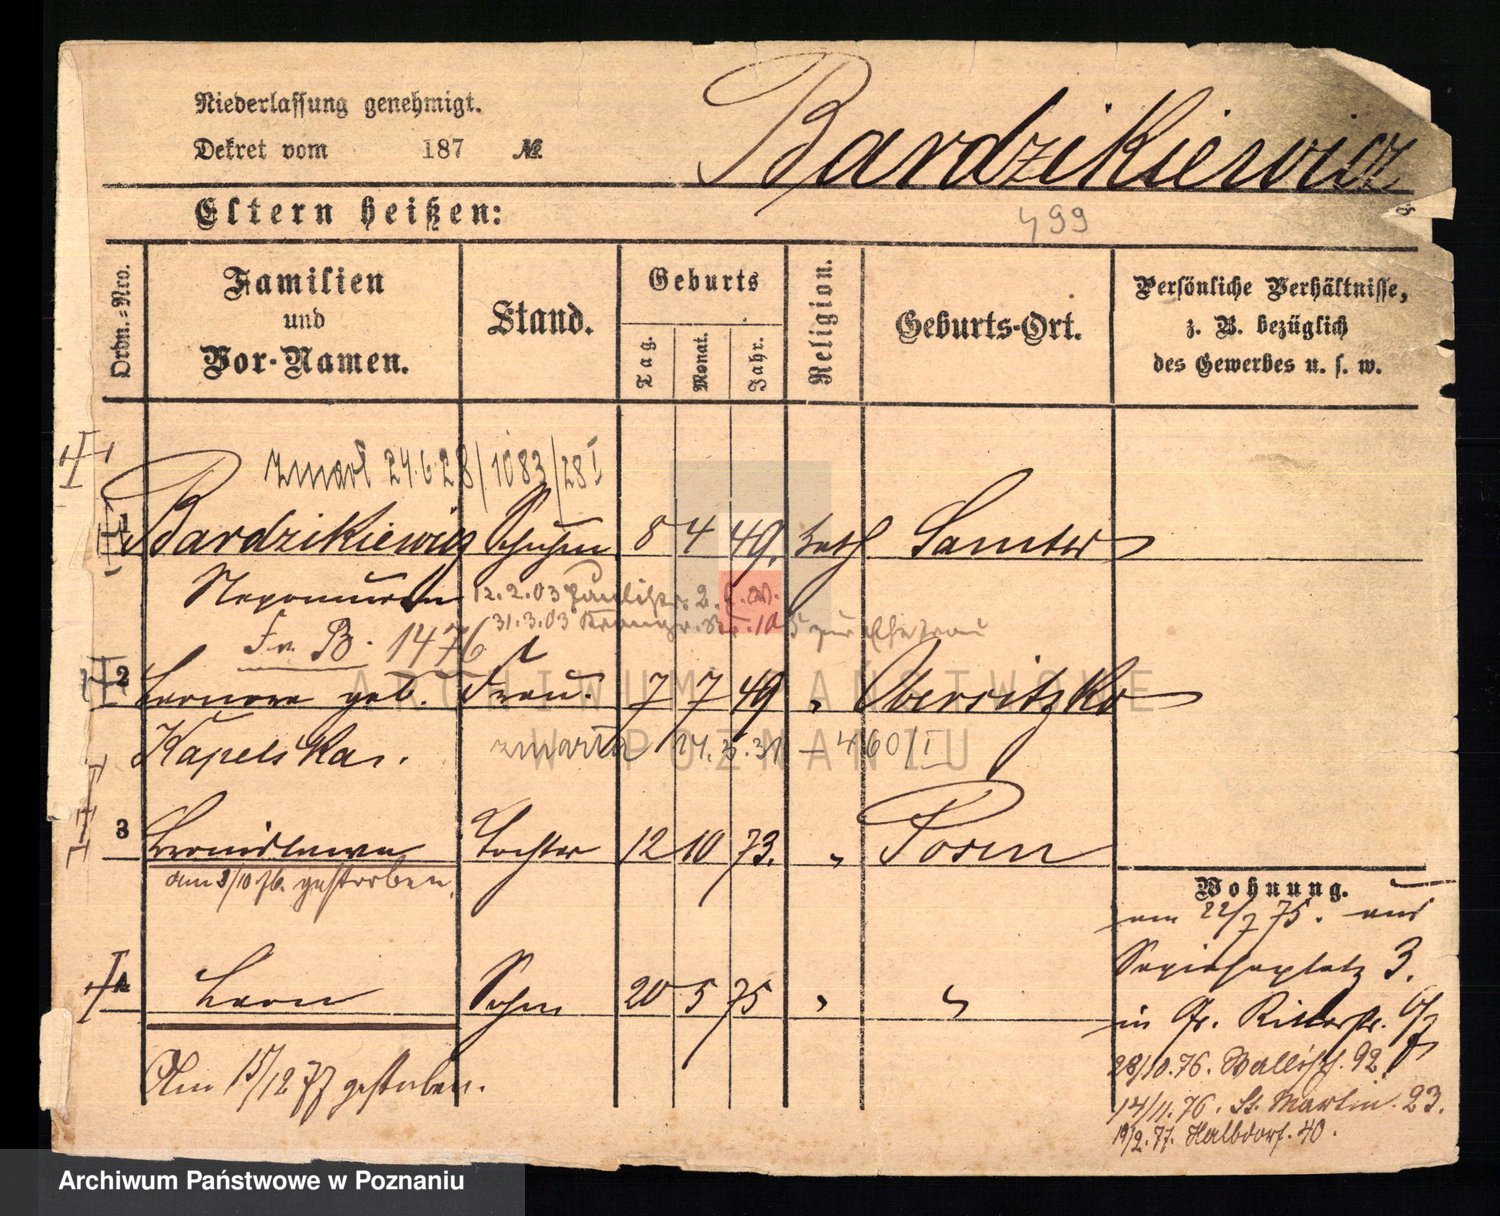 Niederlassung genehmigt.
Dekret vom 187 №
Bardzikiewicz
Eltern heißen:
499
Ordn.-Nro.
Familien
und
Vor-Namen.
Stand.
Geburts
Tag.
Monat.
Jahr.
Religion.
Geburts-Ort.
Persönliche Verhältnisse,
z. B. bezüglich
des Gewerbes u. s. w.
zmarł 24.6.28/1083/28 I
1 Bardzikiewicz 8 4 49. kath Samter
Nepomucen 12.2.03
31.3.03
Fr. B. 1476
2 Leonora geb. Frau. 7 7 49 " Obersitzko
Kapelska. zmarła 460/I
3 Bronislawa Tochter 12 10 73. " Posen
am 3/10 76. gestorben.
Wohnung.
am 22/7 75. aus
Sapiehaplatz 3.
4 Leon Sohn 20 5 75 " "
in Gr. Ritterstr.
Am 15/12 77 gestorben.
28/10.76. Wallisch. 92
14/11.76. St. Martin. 23.
19/2.77. Halbdorf. 40.
ARCHIWUM PAŃSTWOWE
W POZNANIU
Archiwum Państwowe w Poznaniu